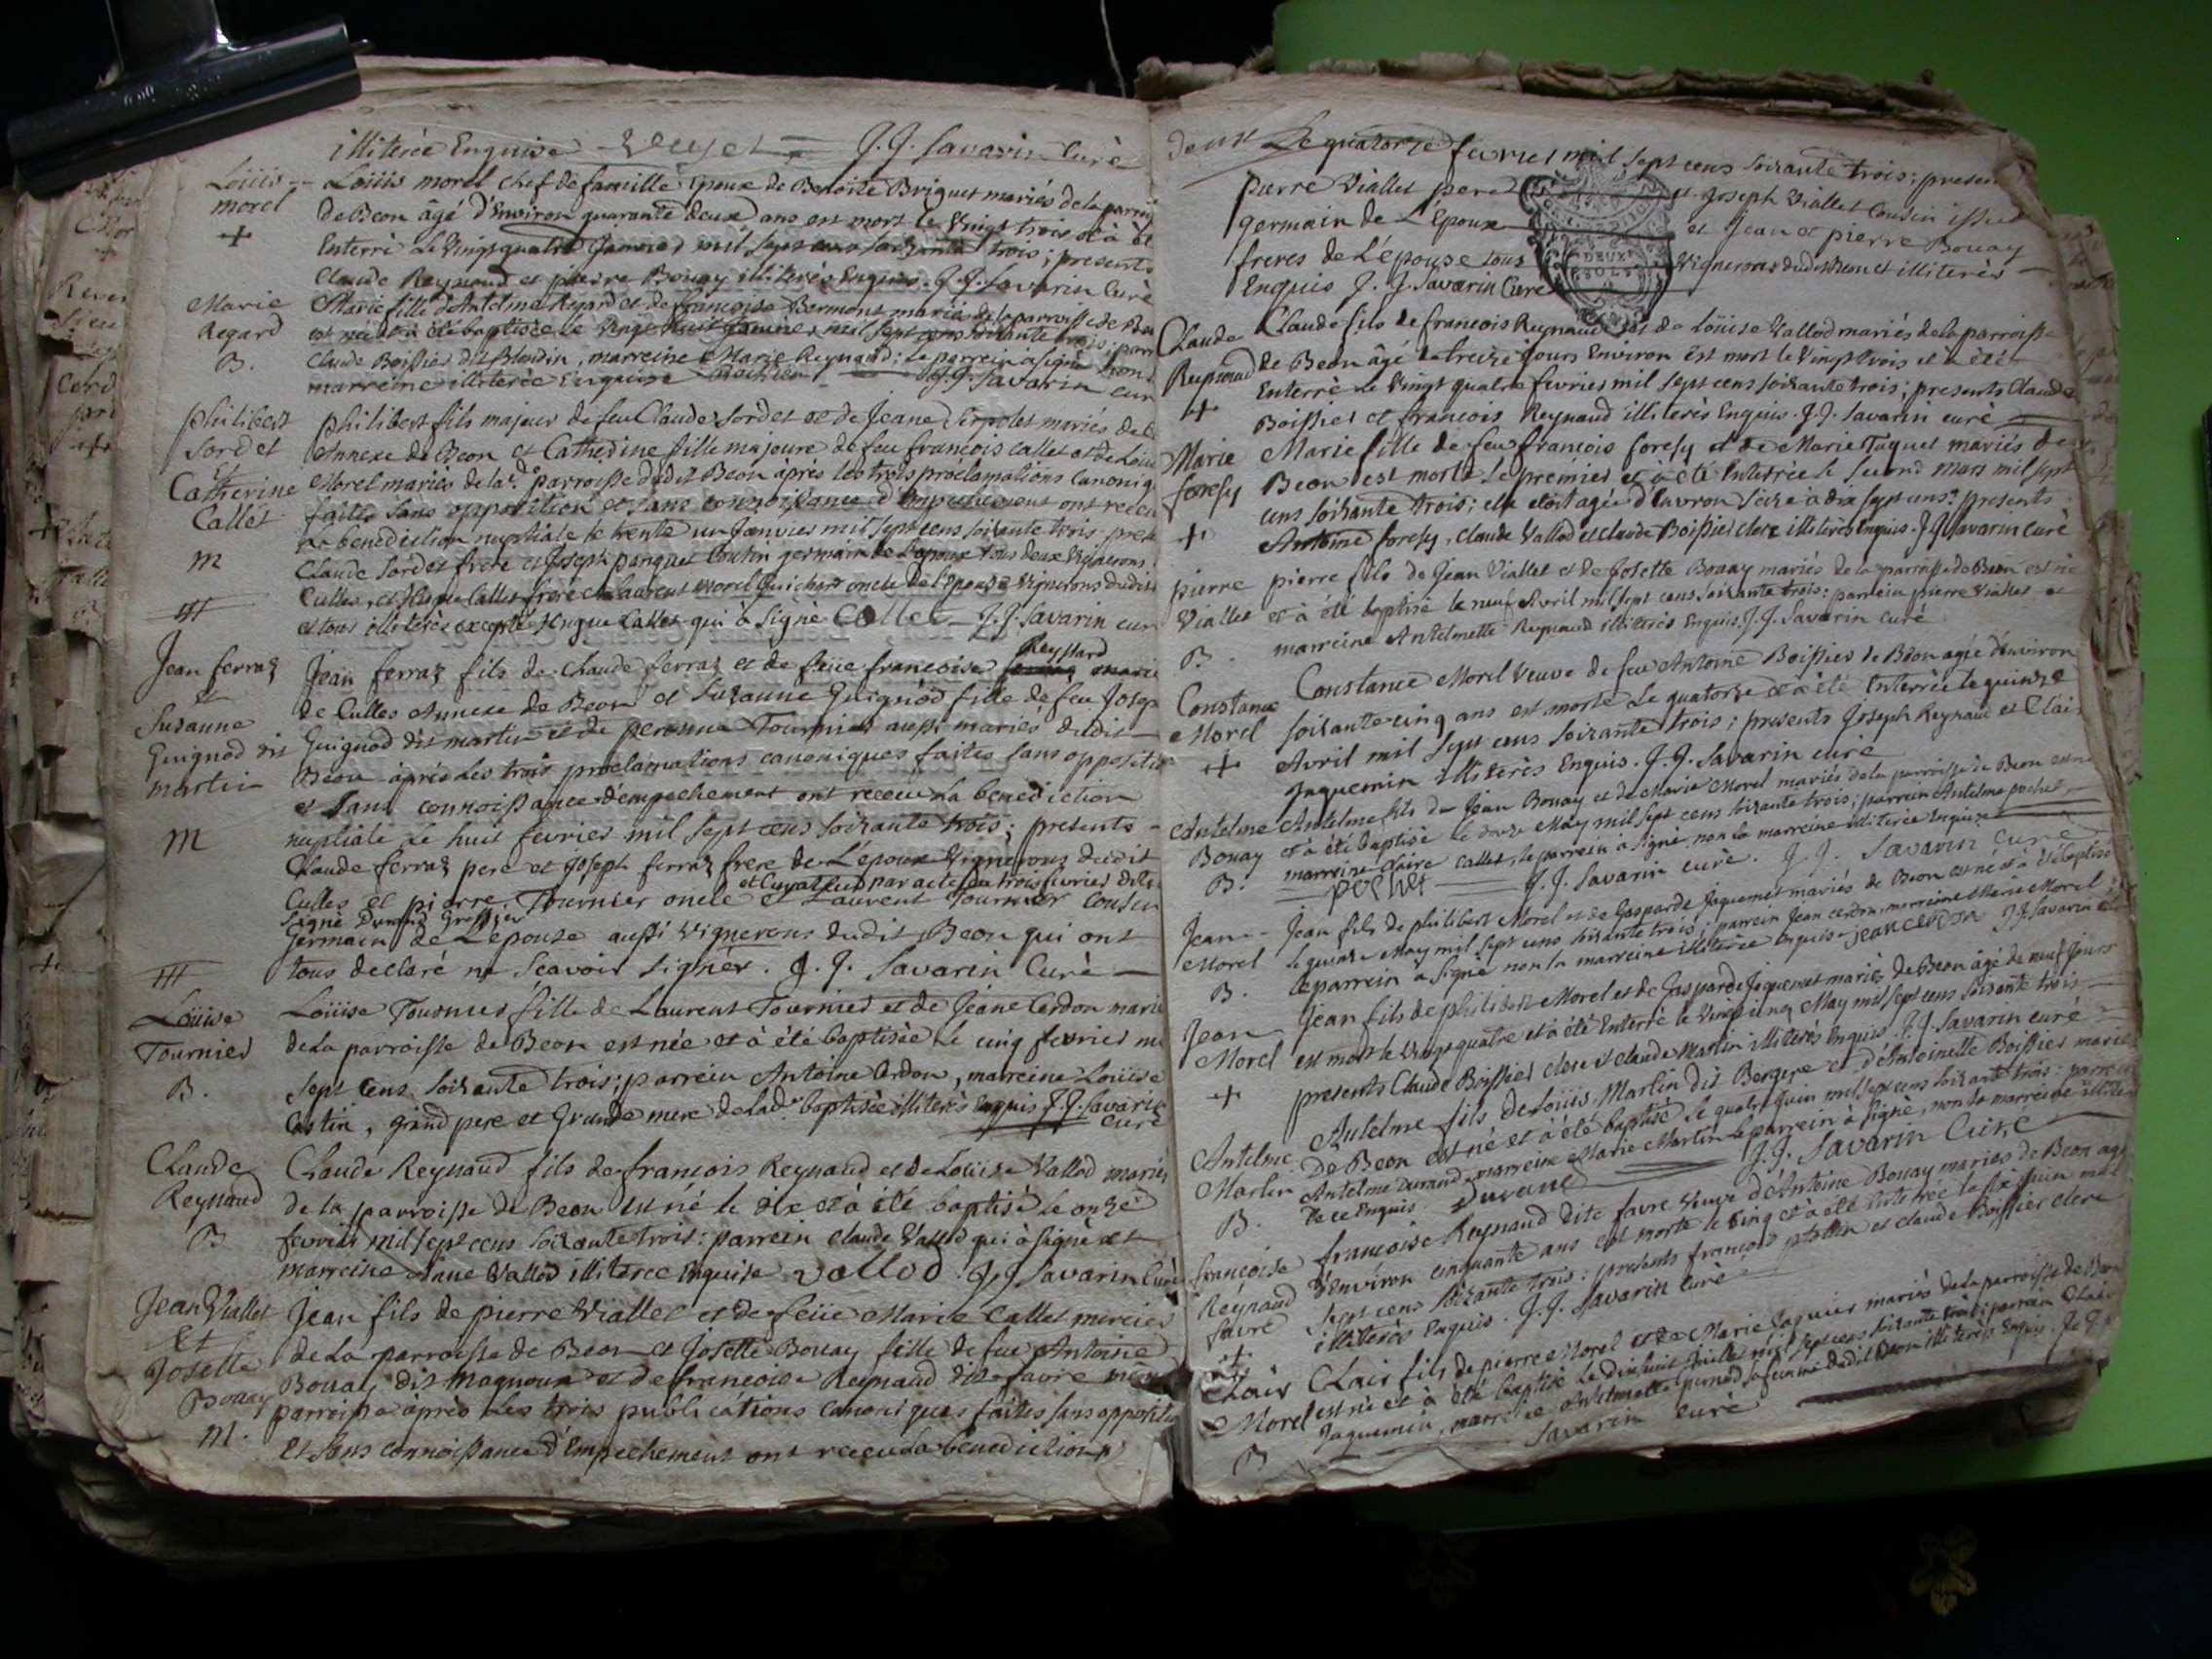 illiterée Enquise J.J. Savarin Curé
Loüis morel
+
Loüis morel chef de famille Epoux de Benoite Briguet mariés de la parroi
de Beon âgé d'Environ quarante deux ans est mort le Vingt trois et à èt
Enterré Le Vingt quatre Janvier mil sept cens soixante trois; presents
Claude Reynaud et pierre Bouay illiterés Enquis. J.J. Savarin Curé
Marie Regard
B.
Marie fille d'Antelme Regard et de françoise Bermont mariés de la parroisse de Beon
est née et à été baptisée le Vingt huit Janvier mil sept cens soixante trois; parr
Claude Boissier dit Blondin, marreine Marie Reynaud; Le parrein a signé non
marreine illiterée Enquise Boissier J.J. Savarin cur
philibert Sordet
Et
Catherine Callet
m
philibert fils majeur de feu Claude Sordet et de Jeane Serpolet mariés de
Annexe de Beon et Catherine fille majeure de feu françois Callet et de Loüi
Morel mariés de lad.e parroisse dudit Beon àprés les trois proclamations canoniq
faites sans opposition et sans connoissance d'Empechement ont receu
la benediction nuptiale le trente un Janvier mil sept cens soixante trois: pres
Claude Sordet frere et Joseph panguet Cousin germain de l'epoux tous deux Vignerons
Culles, et Hugue Callet frere et Laurent morel Guichard oncle de l'Epouse Vignerons dudit
et tous illiterés excepté Hugue Callet qui à Signé Callet J.J. Savarin cur
Jean ferraz
et
Susanne Guignod dit martin
m
Reynard
Jean ferraz fils de Claude ferraz et de feüe francoise marie
de Culles Annexe de Beon et Suzanne Guignod fille de feu Josep
Guignod dit martin et de peronne Tournier aussi mariés dudit
Beon àprés les trois proclamations canoniques faites sans oppositio
et Sans connoissance d'empechement ont receu La benediction
nuptiale Le huit fevrier mil sept cens soixante trois; presents
Claude ferraz pere et Joseph ferraz frere de L'époux Vignerons dudit
et Curateur par acte du trois fevrier dits
Culles et pierre Tournier oncle et Laurent Tournier Cousin
Signé Durand Greffier
Germain de L'epouse aussi Vignerons dudit Beon qui ont
tous declaré ne Scavoir signér. J.J. Savarin Curé
Loüise Tournier
B.
Loüise Tournier fille de Laurent Tournier et de Jéane Cerdon marié
de La parroisse de Beon est née et à été baptisée Le cinq fevrier mi
sept cens soixante trois; parrein Antoine Cerdon, marreine Loüise
Costin, grand pere et Grande mere de lad.e baptisée illiterés Enquis J.J. Savarin
curé
Claude Reynaud
B
Claude Reynaud fils de françois Reynaud et de Loüise Vallod mariés
de la parroisse de Beon est né le dix et à été baptisé le onze
fevrier mil sept cens soixante trois: parrein claude Vallod qui à signé et
marreine Jane Vallod illiterée Enquise vallod. J.J. Savarin Curé
Jean Viallet
Et
Josette Bouay
m.
Jean fils de pierre Viallet et de feüe Marie Callet mariés
de La parroisse de Beon et Josette Bouay fille de feu Antoine
Bouay dit magnoux et de francoise Reynaud dite favre même
parroisse àprés Les trois publications canoniques faites sans oppositio
et sans connoissance d'Empechement ont receu La benediction
deux Le quatorze fevrier mil sept cens soixante trois; presen
pierre Viallet pere et Joseph Viallet Cousin issu
germain de L'Epoux et Jean et pierre Bouay
freres de L'épouse tous Vignerons dudit Beon et illiterés
Enquis J.J. Savarin Curé
DEUX SOLS
Claude Reynaud
+
Claude fils de francois Reynaud et de Loüise Vallod mariés de la parroisse
de Beon âgé de treize jours Environ est mort le Vingt trois et à été
Enterré Le Vingt quatre fevrier mil sept cens soixante trois; presents Claude
Boissier et francois Reynaud illiterés Enquis. J.J. Savarin curé
Marie foresy
+
Marie fille de feu francois foresy et de Marie Tuguet mariés de
Beon est morte Le premier et à été Enterrée le Second mars mil sept
cens soixante trois; elle etoit agée d'Environ seize à dix sept ans: presents
Antoine foresy, claude Vallod et claude Boissier clerc illiterés Enquis. J.J. Savarin curé
pierre Viallet
B.
pierre fils de Jean Viallet et de Josette Bouay mariés de la parroisse de Beon est né
et à été baptisé le neuf Avril mil sept cens soixante trois: parrein pierre Viallet et
marreine Antelmette Reynaud illiterés Enquis, J.J. Savarin curé
Constance Morel
+
Constance Morel Veuve de feu Antoine Boissier de Beon agée d'environ
soixante cinq ans est morte Le quatorze et à été Enterrée le quinze
Avril mil sept cens soixante trois; presents Joseph Reynaud et Clair
Jaquemin illiterés Enquis. J.J. Savarin curé
Antelme Bouay
B.
Antelme fils de Jean Bouay et de Marie Morel mariés de la parroisse de Beon est né
et à été baptisé le May mil sept cens soixante trois; parrein Antelme pochet
marreine Claire Callet, le parrein à signé, non la marreine illiterée Enquise
pochet J.J. Savarin curé. J.J. Savarin Curé
Jean Morel
B.
Jean fils de philibert Morel et de Gasparde Jaquemet mariés de Beon est né et à été baptisé
le quinze May mil sept cens soixante trois; parrein Jean cerdon, marreine Marie Morel
Le parrein à signé non la marreine illiterée Enquise jean cerdon J.J. Savarin curé
Jean Morel
+
Jean fils de philibert Morel et de Gasparde Jaquemet mariés de Beon âgé de neuf Jours
est mort le Vingt quatre et à été Enterré le Vingt cinq May mil sept cens soixante trois
presents Claude Boissier clerc et claude Martin illiterés Enquis. J.J. Savarin curé
Antelme Martin
B.
Antelme fils de Loüis Martin dit Bergere et d'Antoinette Boissier mariés
de Beon est né et à été baptisé Le quatre Juin mil sept cens soixante trois: parrein
Antelme Durand, marreine Marie Martin Le parrein à signé, non la marreine illite
Enquis. Durand J.J. Savarin Curé
françoise Reynaud favre
+
francoise Reynaud dite favre Veuve d'Antoine Bouay mariés de Beon agé
d'Environ cinquante ans est morte le Cinq et à été Enterrée le six Juin mil
sept cens soixante trois: presents françois et claude Boissier clerc
illiterés Enquis. J.J. Savarin Curé
Clair Morel
B
Clair fils de pierre Morel et de Marie Jaquier mariés de la parroisse de Beon
est né et à été baptisé Le dix huit Juillet mil sept cens soixante trois: parrein Clair
Jaquemin, marreine Antelmette sa femme dudit Beon illiterés Enquis. J.J.
Savarin curé